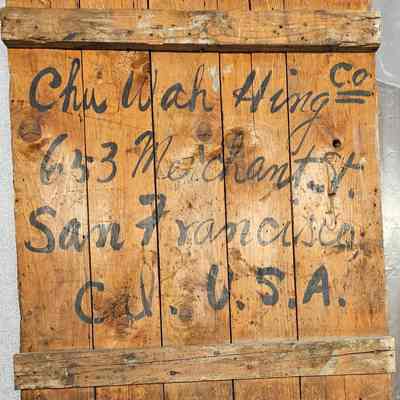 Chu Wah Hing Co
653 Merchant St.
San Francisco
Cal. U.S.A.